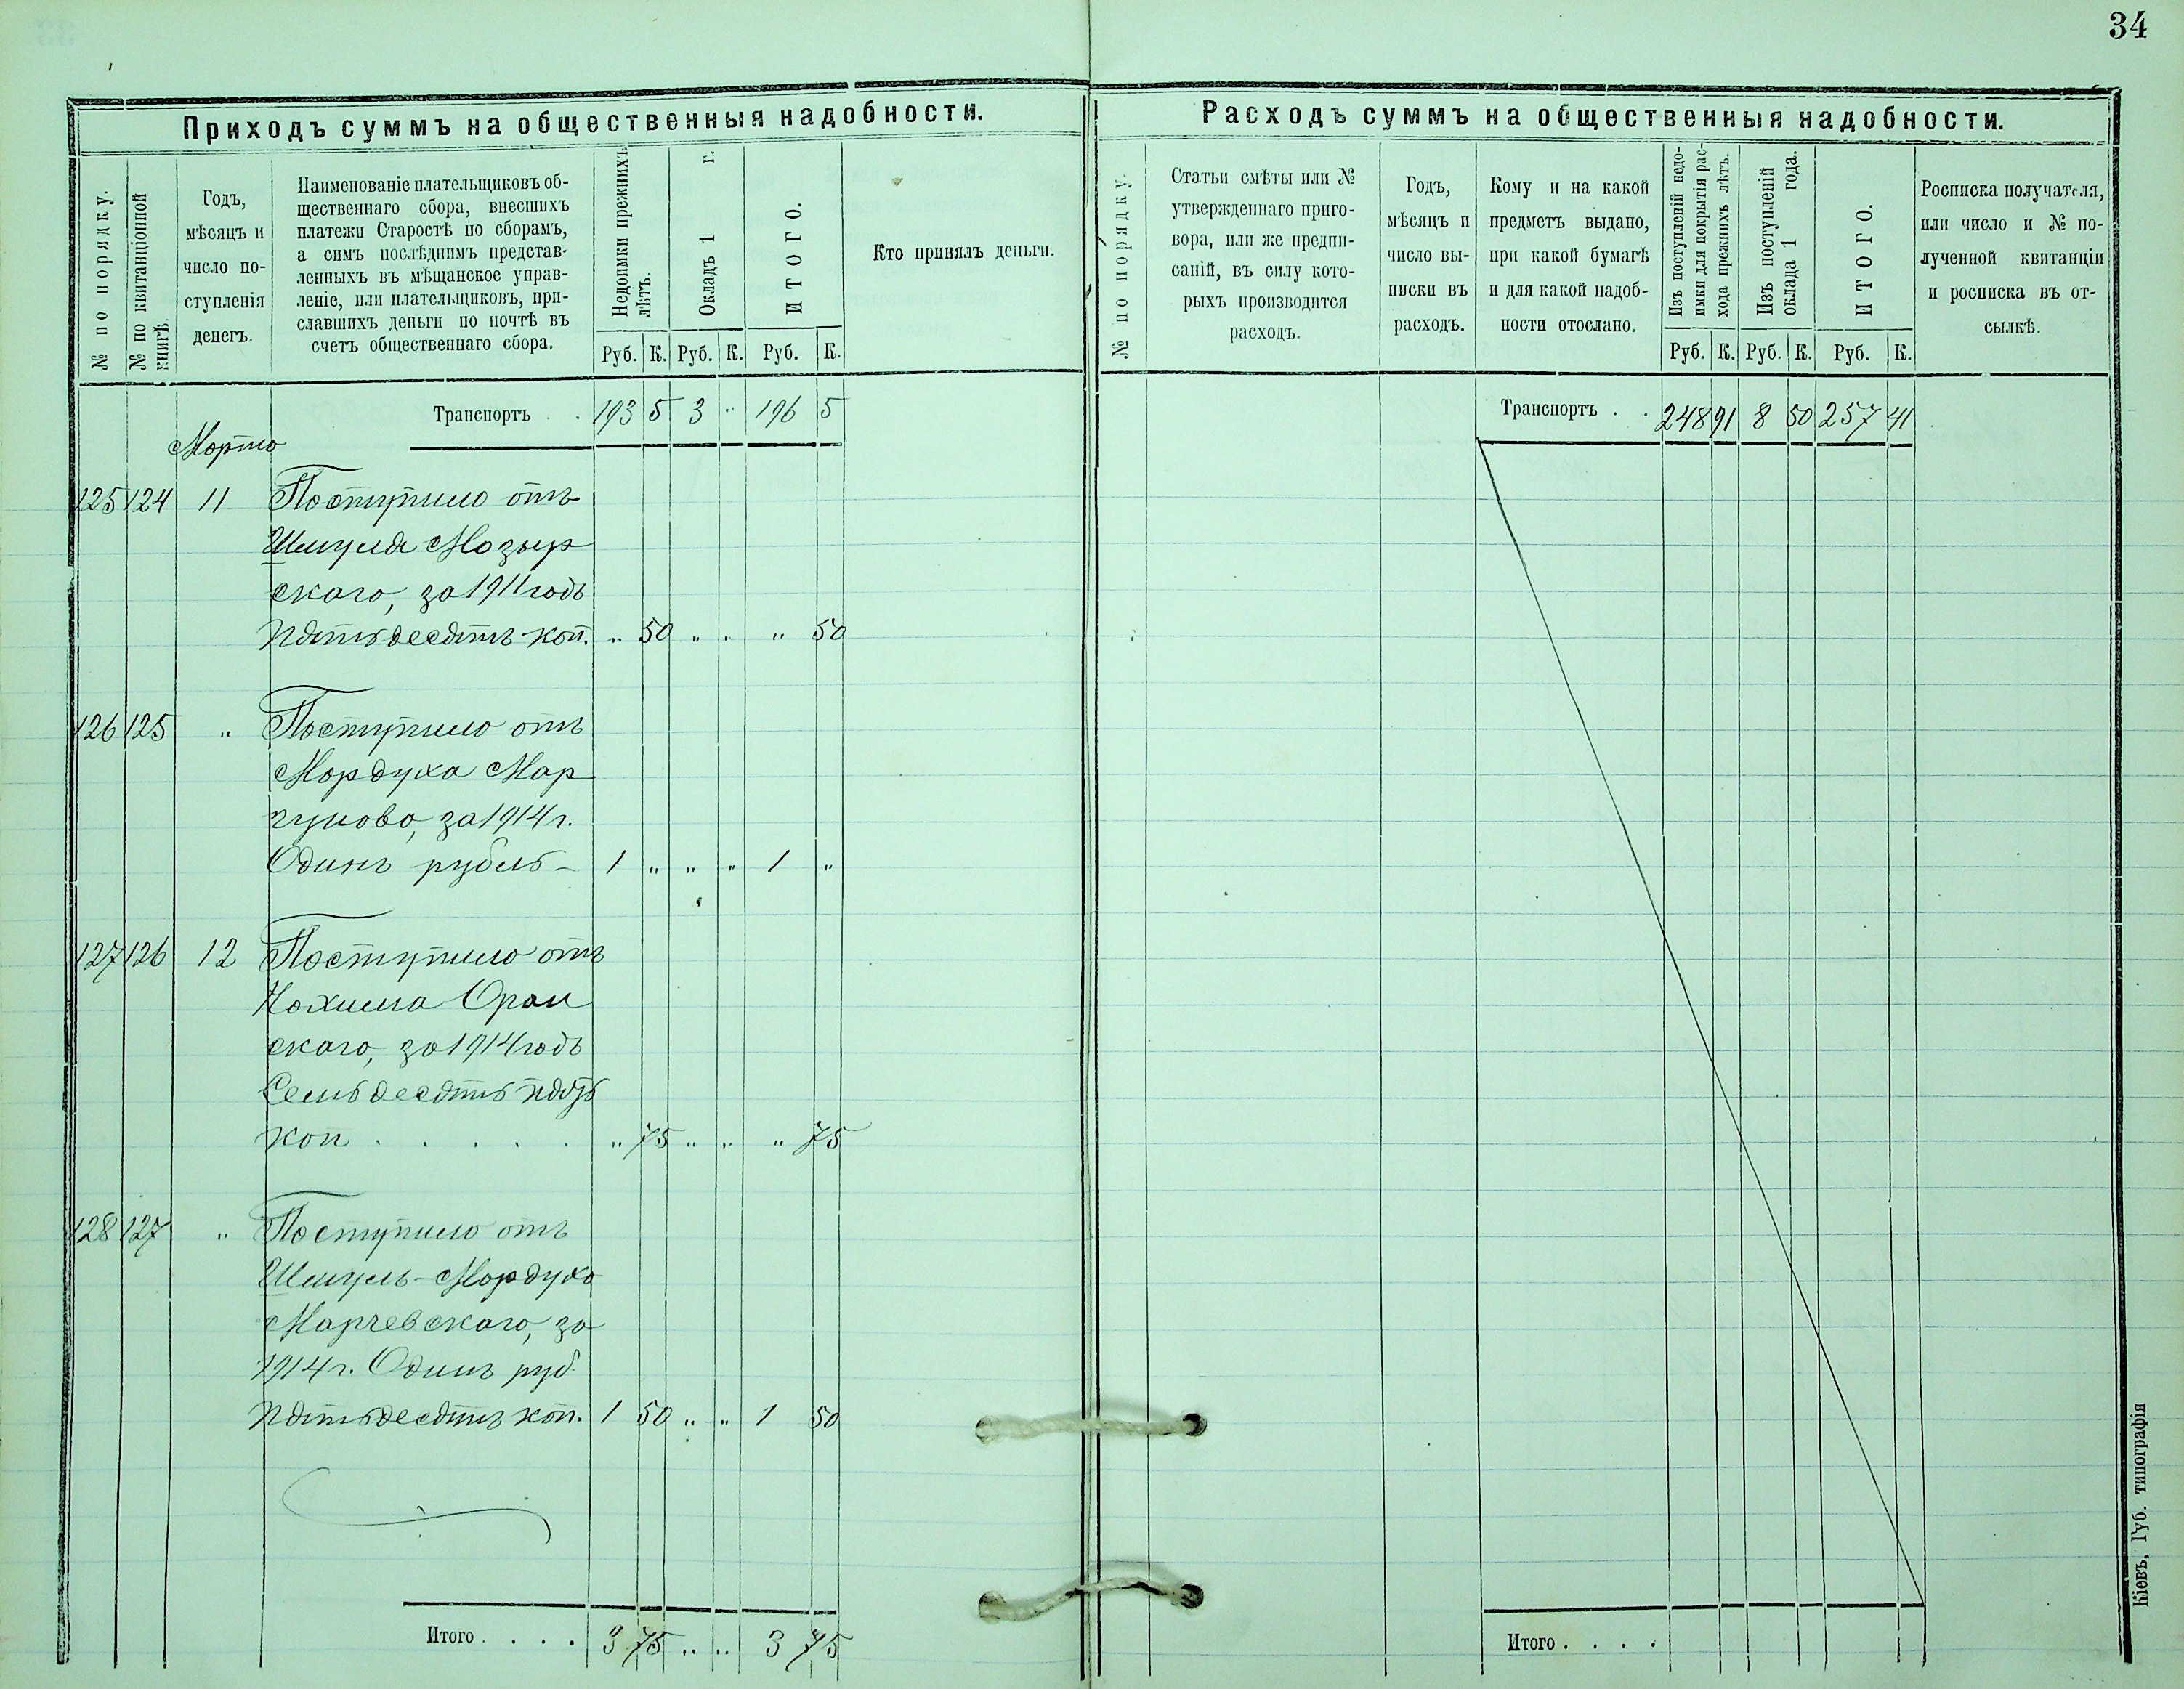 34
Приходъ суммъ на общественныя надобности.
№ по порядку.
№ по квитанціонной книгѣ.
Годъ,
мѣсяцъ и
число по-
ступленія
денегъ.
Наименованіе плательщиковъ об-
щественнаго сбора, внесшихъ
платежи Старостѣ по сборамъ,
а симъ послѣднимъ представ-
ленныхъ въ мѣщанское управ-
леніе, или плательщиковъ, при-
славшихъ деньги по почтѣ въ
счетъ общественнаго сбора.
Недоимки прежнихъ
лѣтъ.
Окладъ 1 г.
ИТОГО.
Руб. К. Руб. К. Руб. К.
Кто принялъ деньги.
Транспортъ . . 193 5 3 " 196 5
Марта
125 124 11 Поступило отъ
Шмуля Мозыр
скаго, за 1911 годъ
пятьдесятъ коп. " 50 " " " 50
126 125 " Поступило отъ
Мордуха Мар
гунова, за 1914 г.
Одинъ рубль – 1 " " " 1 "
127 126 12 Поступило отъ
Нохима Оран
скаго, за 1914 годъ
Семьдесятъ пять
коп . . . . . " 75 " " " 75
128 127 " Поступило отъ
Шмуль-Мордуха
Марчевскаго, за
1914 г. Одинъ руб.
пятьдесятъ коп. 1 50 " " 1 50
Итого . . . . 3 75 " " 3 75
Расходъ суммъ на общественныя надобности.
№ по порядку.
Статьи смѣты или №
утвержденнаго приго-
вора, или же предпи-
саній, въ силу кото-
рыхъ производится
расходъ.
Годъ,
мѣсяцъ и
число вы-
писки въ
расходъ.
Кому и на какой
предметъ выдано,
при какой бумагѣ
и для какой надоб-
ности отослано.
Изъ поступленій недо-
имки для покрытія рас-
хода прежнихъ лѣтъ.
Изъ поступленій
оклада 1 года.
ИТОГО.
Руб. К. Руб. К. Руб. К.
Росписка получателя,
или число и № по-
лученной квитанціи
и росписка въ от-
сылкѣ.
Транспортъ . . 248 91 8 50 257 41
Итого . . . .
Кіевъ, Губ. типографія